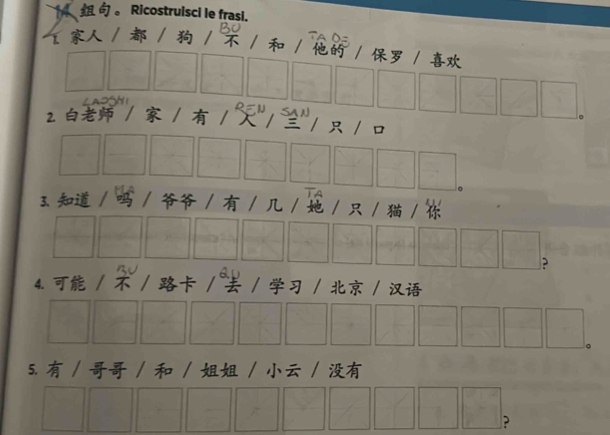 组句。Ricostruisci le frasi.
BU TA DE
1. 家人 / 都 / 狗 / 不 / 和 / 他的 / 保罗 / 喜欢
。
LAOSHI REN SAN
2. 白老师 / 家 / 有 / 人 / 三 / 只 / 口
。
MA TA
3. 知道 / 吗 / 爷爷 / 有 / 几 / 她 / 只 / 猫 / 你
?
BU QU
4. 可能 / 不 / 路卡 / 去 / 学习 / 北京 / 汉语
。
5. 有 / 哥哥 / 和 / 姐姐 / 小云 / 没有
?